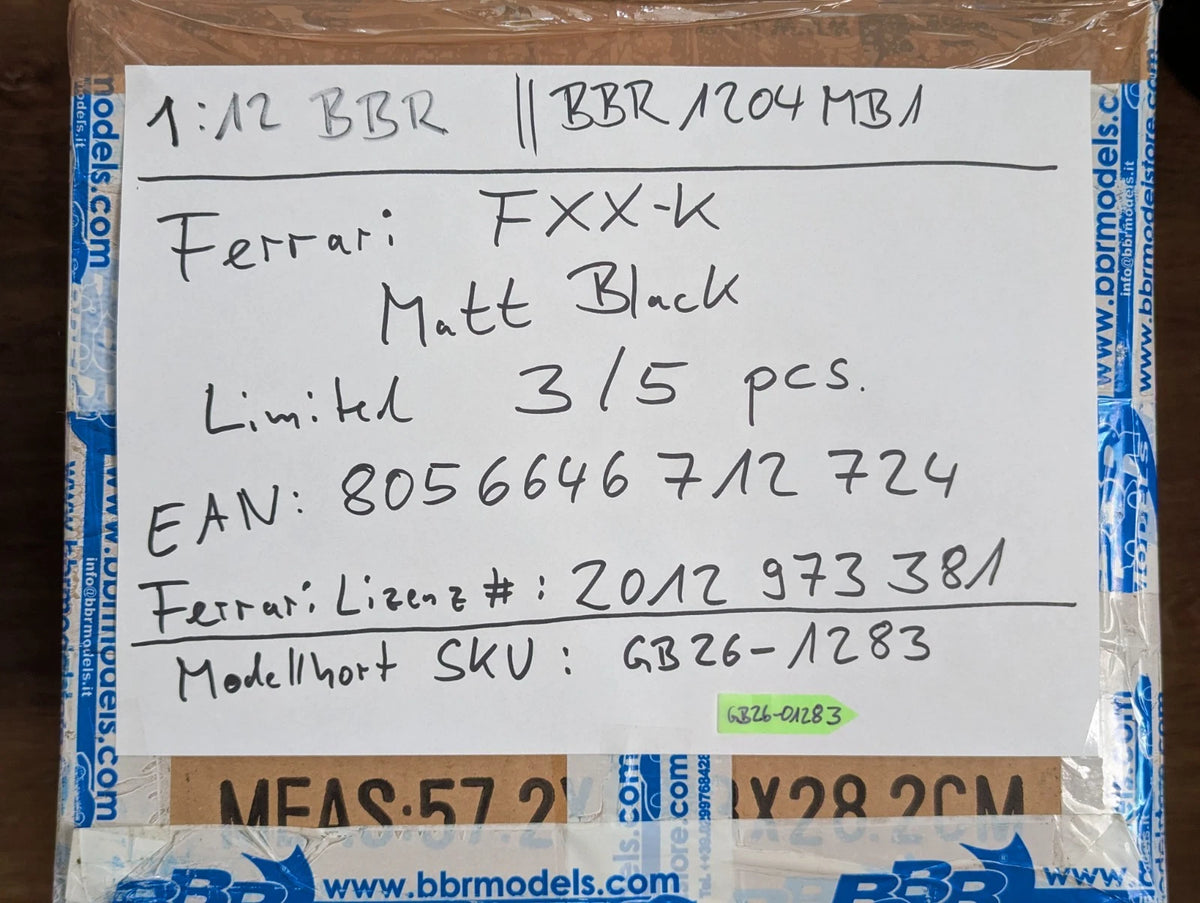 1:12 BBR || BBR1204MB1
Ferrari FXX-K
Matt Black
Limited 3/5 pcs.
EAN: 8056646 712 724
Ferrari Lizenz #: 2012 973 381
Modellhort SKU: GB26-1283
GB26-01283
MEAS:57.2 X28.2CM
www.bbrmodels.com
BBR
BBR
www
models.com
www.bbrmodels
info@bbrmodels.it
www.bbrmodels.c
info@bbrmodels.it
www.bbrmodelstore.com